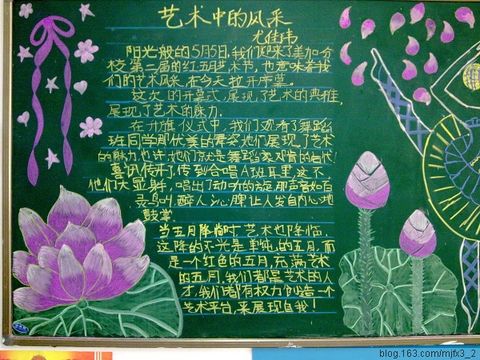 艺术中的风采
尤佳伟
阳光般的5月5日,我们迎来了美加分
校第二届的红五月艺术节,也意味着我
们的艺术风采,在今天拉开序幕。
这次的开幕式,展现了艺术的典雅,
展现了艺术的魅力。
在开幕仪式中,我们观看了舞蹈
班同学那优美的舞姿她们展现了艺术
的魅力,也许她们就是舞蹈家邓肯的后代!
喜讯传来了,传到合唱A班耳里,这不,
他们大显身,唱出了动听的
灵鸟叫,醉人心脾让人发自内心地
鼓掌。
当五月降临时,艺术也降临,
这降的不光是单纯的五月,而
是一个红色的五月,充满艺术
的五月,我们都是艺术的人
才,我们都有权力创造一个
艺术平台,来展现自我!
blog.163.com/mjfx3_2